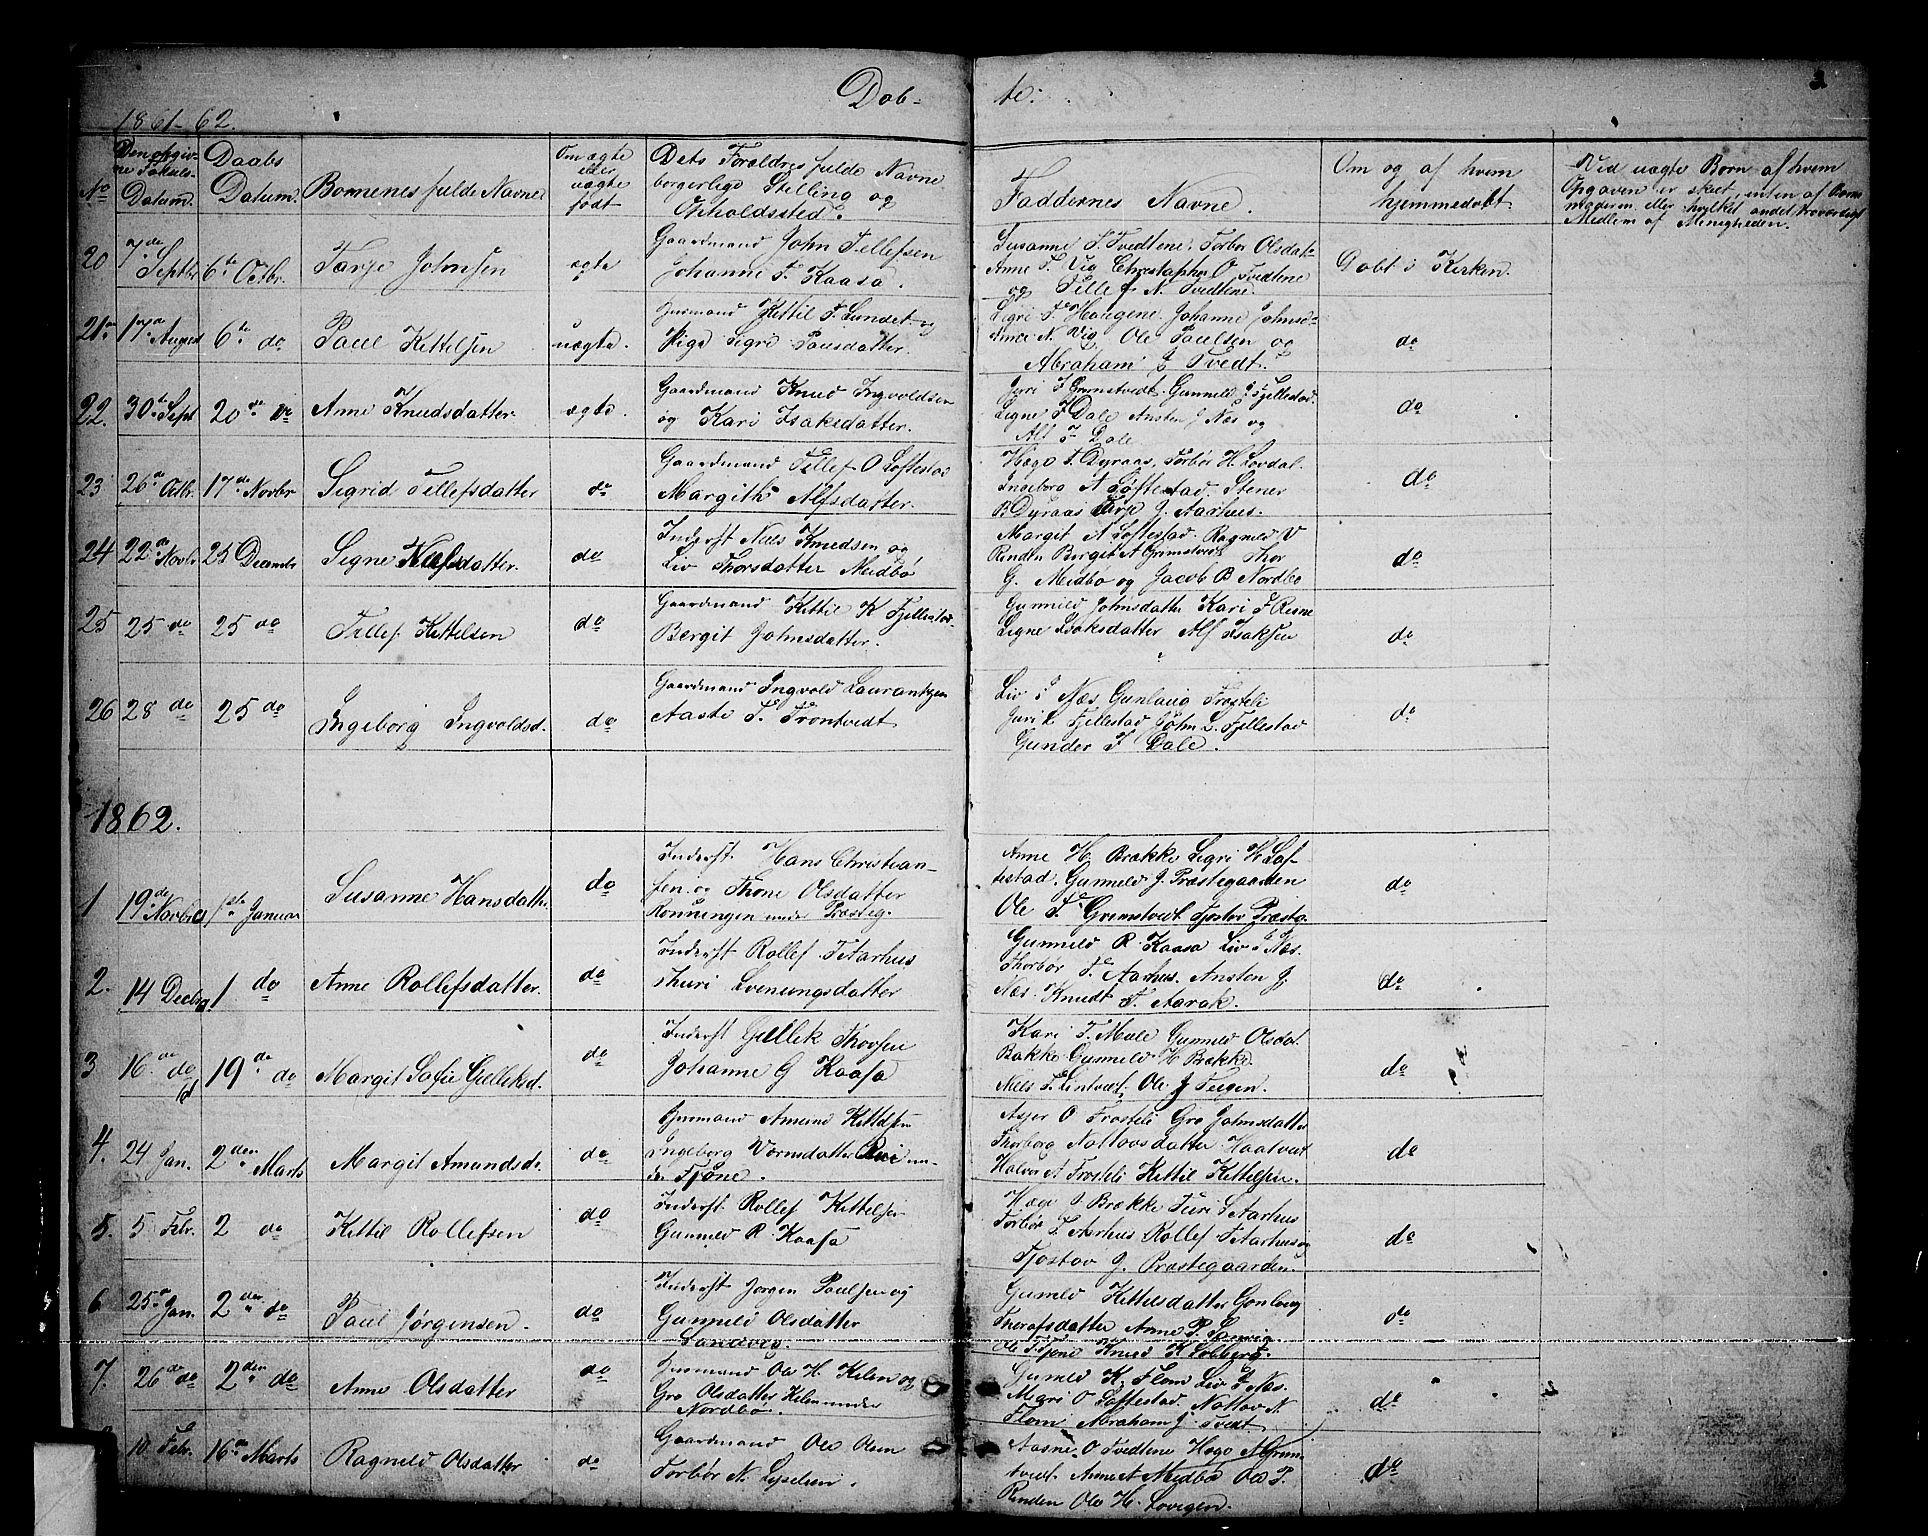 Døb- te:
3
1861-62.
No
Den opgiv-
ne Fødsels-
Datum.
Daabs
Datum.
Børnenes fulde Navne
Om ægte
eller
uægte
født
Dets Forældres fulde Navne
borgerlige Stilling og
Opholdssted.
Faddernes Navne.
Om og af hvem
hjemmedøbt
Ved uægte Børn af hvem
Opgaven er skeet, enten af Barne
moderen eller hvilket andet troværdigt
Medlem af Menigheden.
20 7de Septbr 6te Octbr. Tarje Johnsen ægte
Gaardmand John Tellefsen
Johanne T. Kaasa.
Susanne T. Tvedtene. Torbør Olsdat-
Anne T. Vig Christopher O Tvedtene
og Tellef N. Tvedtene.
Døbt i Kirken.
21 17de August 6te do Paul Kittelsen uægte.
Huusmand Kittil T. Lundet og
Pige Sigri Paulsdatter.
Sigri T. Haugene. Johanne Johnsd-
Anne N. Vig. Ole Paulsen og
Abraham J Tvedt.
do
22. 30te Sept 20de do Anne Knudsdatter. ægte.
Gaardmand Knud Ingvoldsen
og Kari Isaksdatter.
Jyri I Grimstvedt. Gunnild J Fjellestad.
Signe T Dale Ansten J Næs og
Alf T Dale
do
23 26de Octbr. 17de Novbr Sigrid Tellefsdatter do
Gaardmand Tellef O Loftestad
Margith Alfsdatter.
Hæge T. Dyraas, Torbør H. Lovdal.
Ingeborg A Loftestad. Stener
B Dyraas Tarje J. Aarhus.
do
24 22de Novbr 25 Decembr Signe Nielsdatter. do
Inderst Niels Knudsen og
Liv Thorsdatter Meidbø
Margit A Loftestad. Ragnild V
Rinden Bergit A Grimstvedt Thor
G. Midbø og Jacob B Nordbø
do
25 25 do 25 do Tellef Kittelsen do
Gaardmand Kittil K Fjellestad
Bergit Johnsdatter.
Gunnild Johnsdatter Kari T Reine
Signe Isaksdatter Alf Isaksen
do
26 28 do 25 do Ingeborg Ingvoldsd. do
Gaardmand Ingvold Laurantzen
Aaste T. Trontvedt
Liv J Næs Gunlaug Trosteli
Juri L Fjellestad John L. Fjellestad
Gunder T Dale.
do
1862.
1 19de Novbr 1ste Januar Susanne Hansdattr. do
Inderst. Hans Christian-
sen og Thone Olsdatter
Rønningen under Præsteg.
Anne H. Brække Sigri H Lof-
testad. Gunnild J. Præstegaarden
Ole T. Grimstvedt Tjostov Præsteg.
do
2. 14 Decbr 1 do Anne Rollefsdatter. do
Inderst Rollef T Aarhus
Thuri Evenungsdatter
Gunnild R. Kaasa Liv J Næs.
Thorbør T. Aarhus. Ansten J.
Næs. Knudt T. Aarak.
do
3 16de do 19de do Margit Sofie Gjelleksd. do
Inderst Gjellek Thovsen
Johanne G Kaasa
Kari T. Male Gunnild Olsdat.
Bakke Gunnild H Bakke
Niels T. Lintvedt, Ole J Teigen.
do
4. 24 Jan. 2den Marts Margit Amundsdr. do
Huusmand Amund Kittilsen
Ingeborg Vornsdatter Lie un-
der Tjøne.
Asjer O Trosteli Gro Johnsdatter
Thorborg Nottovsdatter Haatvedt
Halvor A Trosteli Kittil Kittelsen.
do
5. 5 Febr. 2 do Kittil Rollefsen do
Inderst. Rollef Kittelsen
Gunnild R. Kaasa
Hæge O Brække Turi S Aarhus
Torbør T. Aarhus Rollef T Aarhus og
Tjostov J. Præstegaarden.
do
6 25de Jan. 2den do Paul Jørgensen. do
Inderst Jørgen Paulsen og
Gunnild Olsdatter
Sandvig.
Gunild Kittilsdatter Gonlaug
Therafsdatter Anne P. Sanvig
Ole T Tjøne Knud K Solberg.
do
7. 26de do 2den do Anne Olsdatter do
Huusmand Ole H. Kilen og
Gro Olsdatter Kilen under
Nordbø.
Gunild K. Flom Liv J Næs.
Margi O Loftestad. Nottov N.
Flom Abraham J. Tvedt
do
10. Febr. 16de Marts Ragnild Olsdatter do
Gaardmand Ole Olsen
Torbør N. Lyselien.
Aasne O Tvedtene Hæge A Grim-
stvedt. Anne A Midbø Ole P.
Rinden Ole H. Lovigen.
do